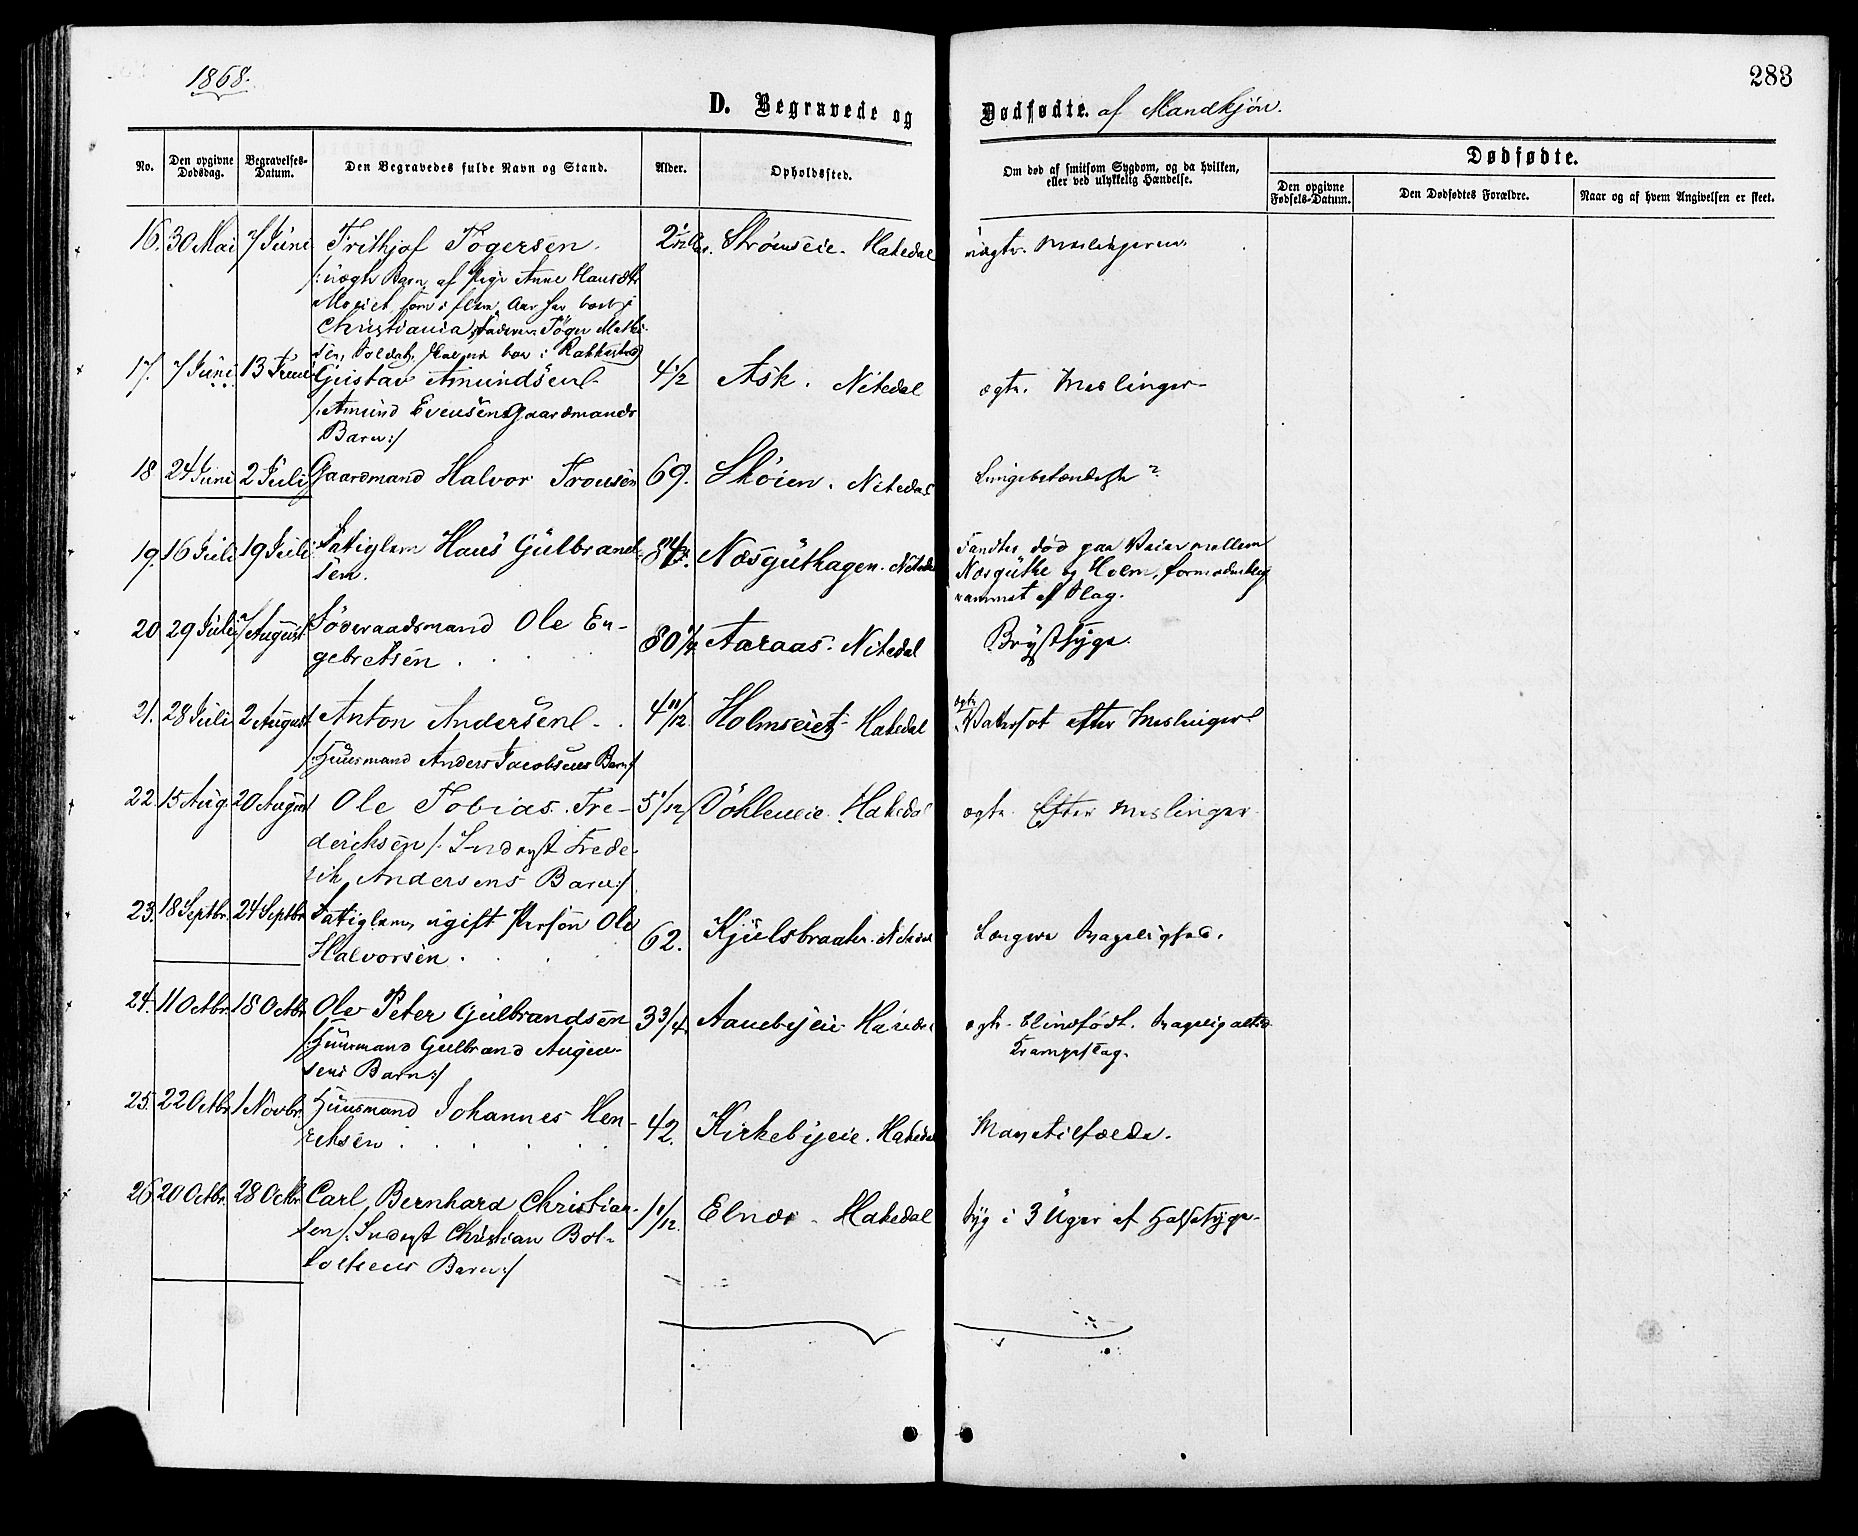 1868.
283
D. Begravede og Dødfødte. af Mandkjøn.
No.
Den opgivne Dødsdag.
Begravelses-Datum.
Den Begravedes fulde Navn og Stand.
Alder.
Opholdssted.
Om død af smitsom Sygdom, og da hvilken, eller ved ulykkelig Hændelse.
Dødfødte.
Den opgivne Fødsels-Datum.
Den Dødfødtes Forældre.
Naar og af hvem Angivelsen er skeet.
16. 30 Mai 7 Juni Frithjof Tøgersen. Strømseie. Hakedal uægte. Meslingerne.
/: uægte Barn af Pige Anne Hansdtr
som i flere Aar har boet i
Christiania, Faderen Tøger Mathi-
sen, Soldat, skal nu boe i Rakkestad
17. 7 Juni 13 Juni Gustav Amundsen 4 1/2 Ask. Nitedal ægte. Meslinger
/: Amund Evensen Gaardmands
Barn :/
18 24 Juni 2 Juli Gaardmand Halvor Tronsen 69. Skøien. Nitedal Lungebetændelse?
19. 16 Juli 19 Juli Fattiglem Hans Gulbrand-
sen. Næsguthagen. Nitedal
Fandtes død paa Veien mellem
Næsguthe og Holm, formodentlig
rammet af Slag.
20 29 Juli 7 August Føderaadsmand Ole En-
gebretsen 80 1/2 Aaraas. Nitedal Brystsyge.
21. 28 Juli 2 August Anton Andersen 4 11/12 Holmseiet Hakedal ægte Vatersot efter Meslinger
/: Huusmand Anders Jacobsens Barn :/
22. 15 Aug. 20 August Ole Tobias Fre- 5 1/12 Døhleneie. Hakedal ægte. Efter Meslinger
deriksen /: Inderst Frede-
rik Andersens Barn :/
23. 18 Septbr. 24 Septbr Fattiglem, ugift Person Ole
Halvorsen 62. Kjulsbraaten. Nitedal Længere Svagelighed.
24. 11 Octbr. 18 Octbr. Ole Peter Gulbrandsen 3 3/4 Aanebyeie Hakedal ægte. Blindfødt. Svagelig altid
Krampeslag.
/: Huusmand Gulbrand Augun-
sens Barn :/
25. 22 Octbr. 1 Novbr. Huusmand Johannes Hen-
riksen 42. Kirkebyeie. Hakedal Mavetilfælde.
26. 20 Octbr. 28 Octbr. Carl Bernhard Christian- 1 1/12. Elnæs. Hakedal Syg i 3 Uger af Halssyge
sen /: Inderst Christian Bot-
tolfsens Barn :/